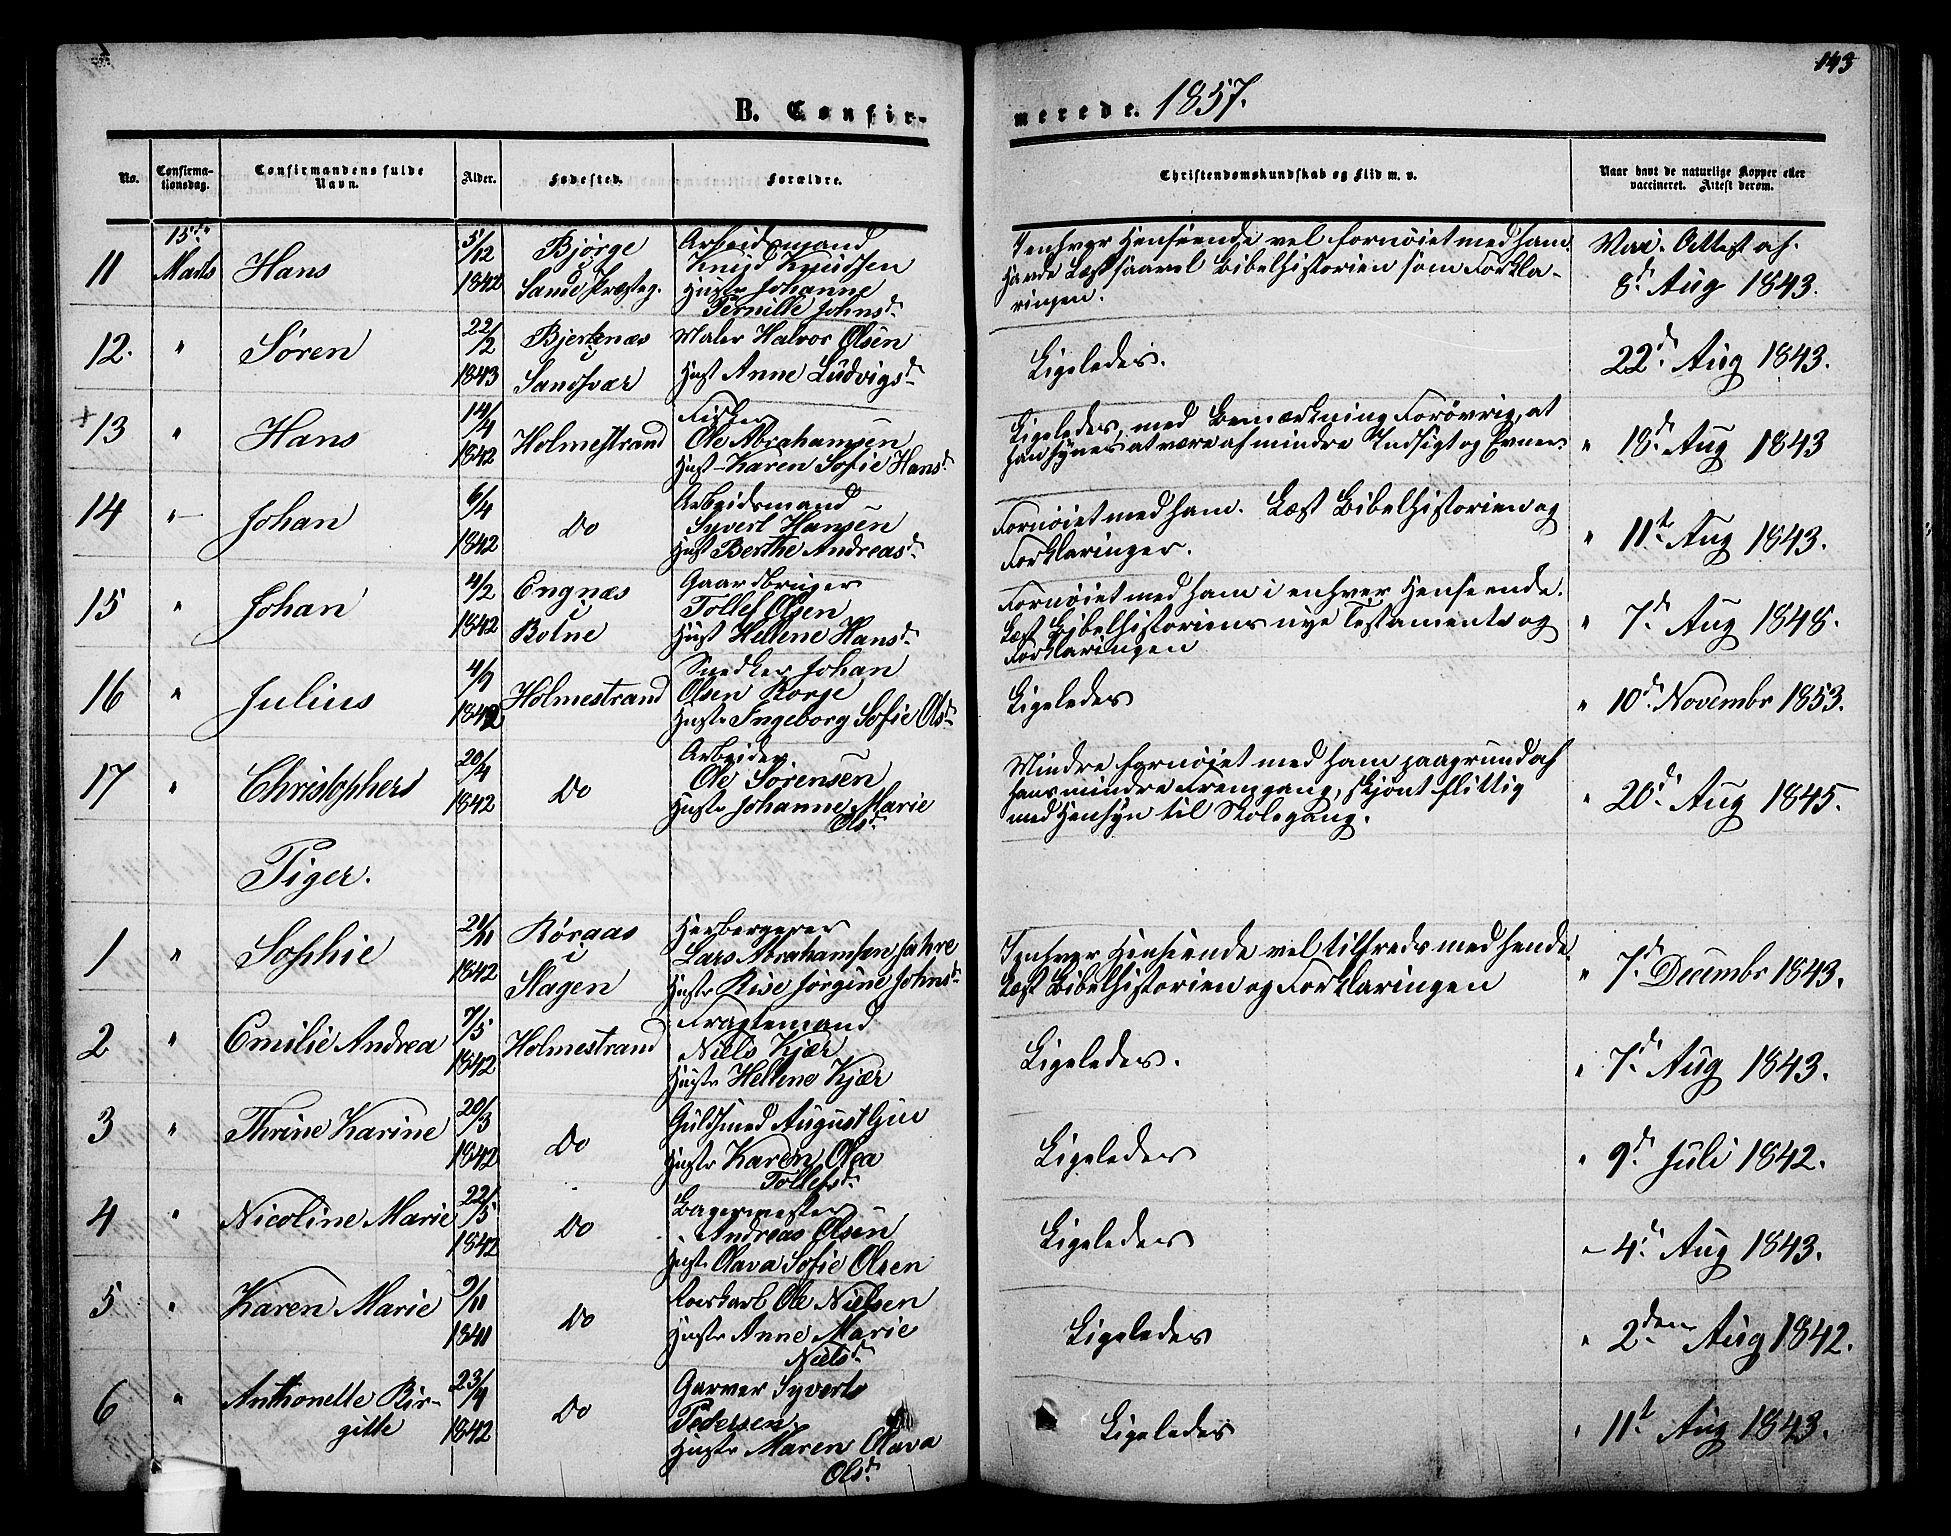 143
B. Confir-
merede. 1857.
No.
Confirma-
tionsdag.
Confirmandens fulde
Navn.
Alder.
Fødested.
Forældre.
Christendomskundskab og Flid m. v.
Naar havt de naturlige Kopper eller
vaccineret. Attest derom.
11
15de
Marts
Hans
5/12
1842
Bjørge
Sande Præsteg.
Arbeidsmand
Knud Knudsen
Hustr Johanne
Pernille Johnsd.
I enhver Henseende vel fornøiet med ham.
Havde Læst saavel Bibelhistorien som Forkla-
ringen.
Vac. Attest af.
8d. Aug 1843.
12.
"
Søren
22/2
1843
Bjerknæs
i
Sandsvær
Maler Halvor Olsen
Hust Anne Ludvigsd.
Ligeledes.
22d. Aug 1843.
+13
"
Hans
14/4
1842
Holmestrand
Fisker
Ole Abrahamsen
Hust- Karen Sofie Hansd.
Ligeledes, med Bemærkning Forøvrig, at
han synes at være af mindre Indsigt og Evner
" 18d. Aug 1843
14
"
Johan
6/4
1842
Do
Arbeidsmand
Syvert Hansen
Hust Berthe Andreasd.
Fornøiet med ham. Læst Bibelhistorien og
Forklaringer.
" 11t Aug 1843.
15
"
Johan
4/2
1842
Engnæs
i
Botne
Gaardbruger
Tollef Olsen
Hust Hellene Hansd.
Fornøiet med ham i enhver Henseende.
Læst Bibelhistoriens nye Testamente og
Forklaringen
" 7d. Aug 1848.
16
"
Julius
1842
Holmestrand
Snedker Johan
Olsen Korge
Hustr Ingeborg Sofie Olsd.
Ligeledes
" 10d. Novembr 1853.
17
"
Christophers
20/4
1842
Do
Arbeider
Ole Sørensen
Hustr Johanne Marie
Olsd.
Mindre fornøiet med ham paagrund af
hans mindre Fremgang, skjønt flittig
med Hensyn til Skolegang.
" 20d. Aug 1845.
Piger.
1
"
Sophie
21/11
1842
Røraas
i
Slagen
Herbergerer
Lars Abrahamsen Jahre
Hustr Rise Jørgine Johnsd.
I enhver Henseende vel tilfreds med hende.
Læst Bibelhistorien og Forklaringen
" 7d. Decembr 1843.
2
"
Emilie Andrea
7/5
1842
Holmestrand
Fragtemand
Niels Kjær
Hustr Hellene Kjær
Ligeledes.
" 7d. Aug 1843.
3
"
Thrine Karine
20/3
1842
Do
Guldsmed August
Hustr Karen Olea
Tollefsd.
Ligeledes
" 9d. Juli 1842.
4
"
Nicoline Marie
22/5
1842
Do
Bagermester
Andreas Olsen
Hustr Olava Sofie Olsen
Ligeledes
" 4d. Aug 1843.
5
"
Karen Marie
9/11
1841
Do
Ole Nielsen
Hustr Anne Marie
Nielsd.
Ligeledes
" 2den Aug 1842.
6
"
Anthonette Bir-
gitte
23/4
1842
Do
Garver Syverts
Pedersen
Hustr Maren Olava
Olsd.
Ligeledes
" 11t Aug 1843.